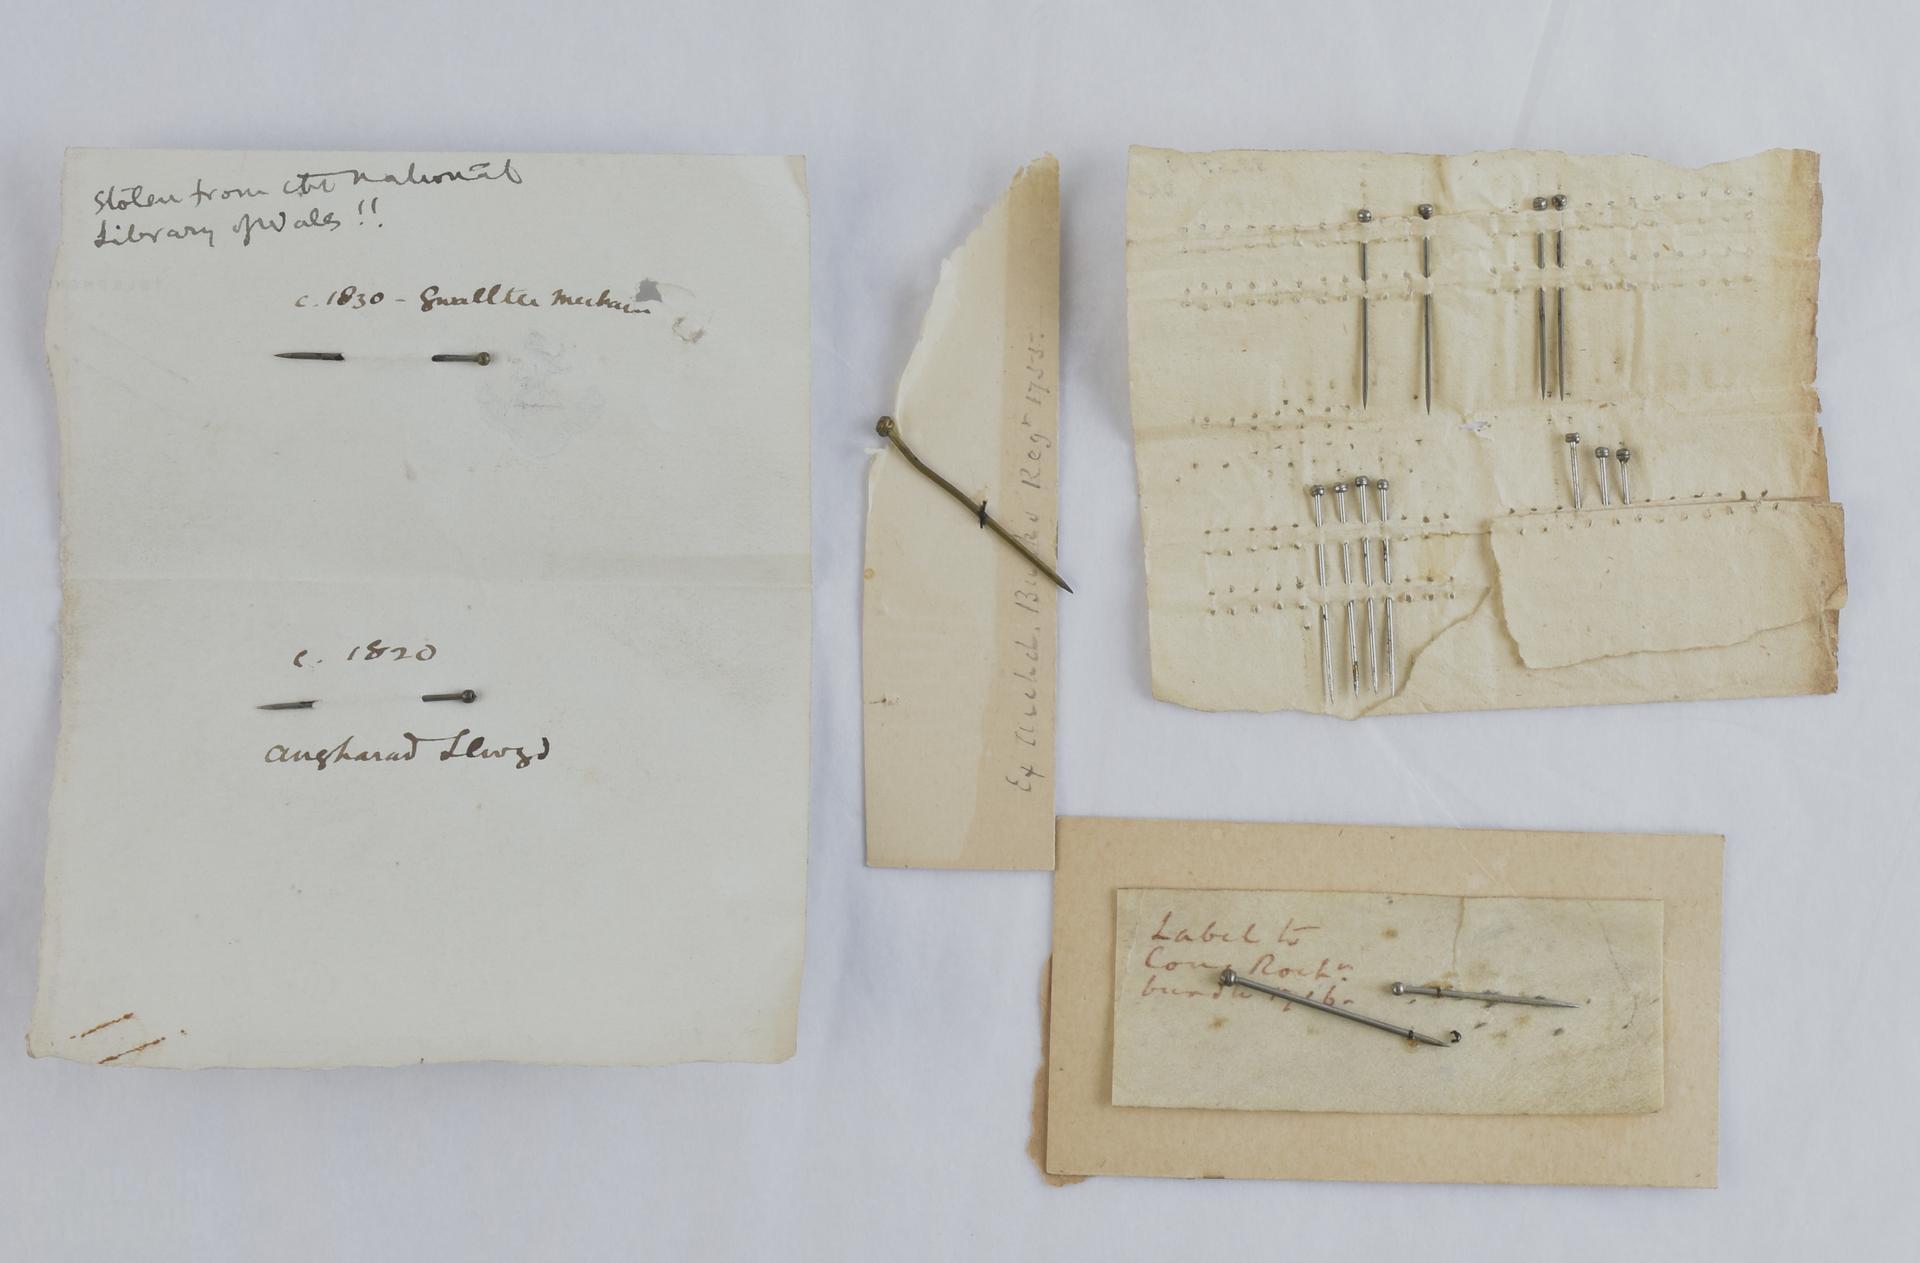 Stolen from the National
Library of Wales !!
c. 1830 - Gwallter Mechain
c. 1820
Angharad Llwyd
Ex Archd. Bucks Regr 1755.
Label to
Cons Rochr.
bundle 1716.